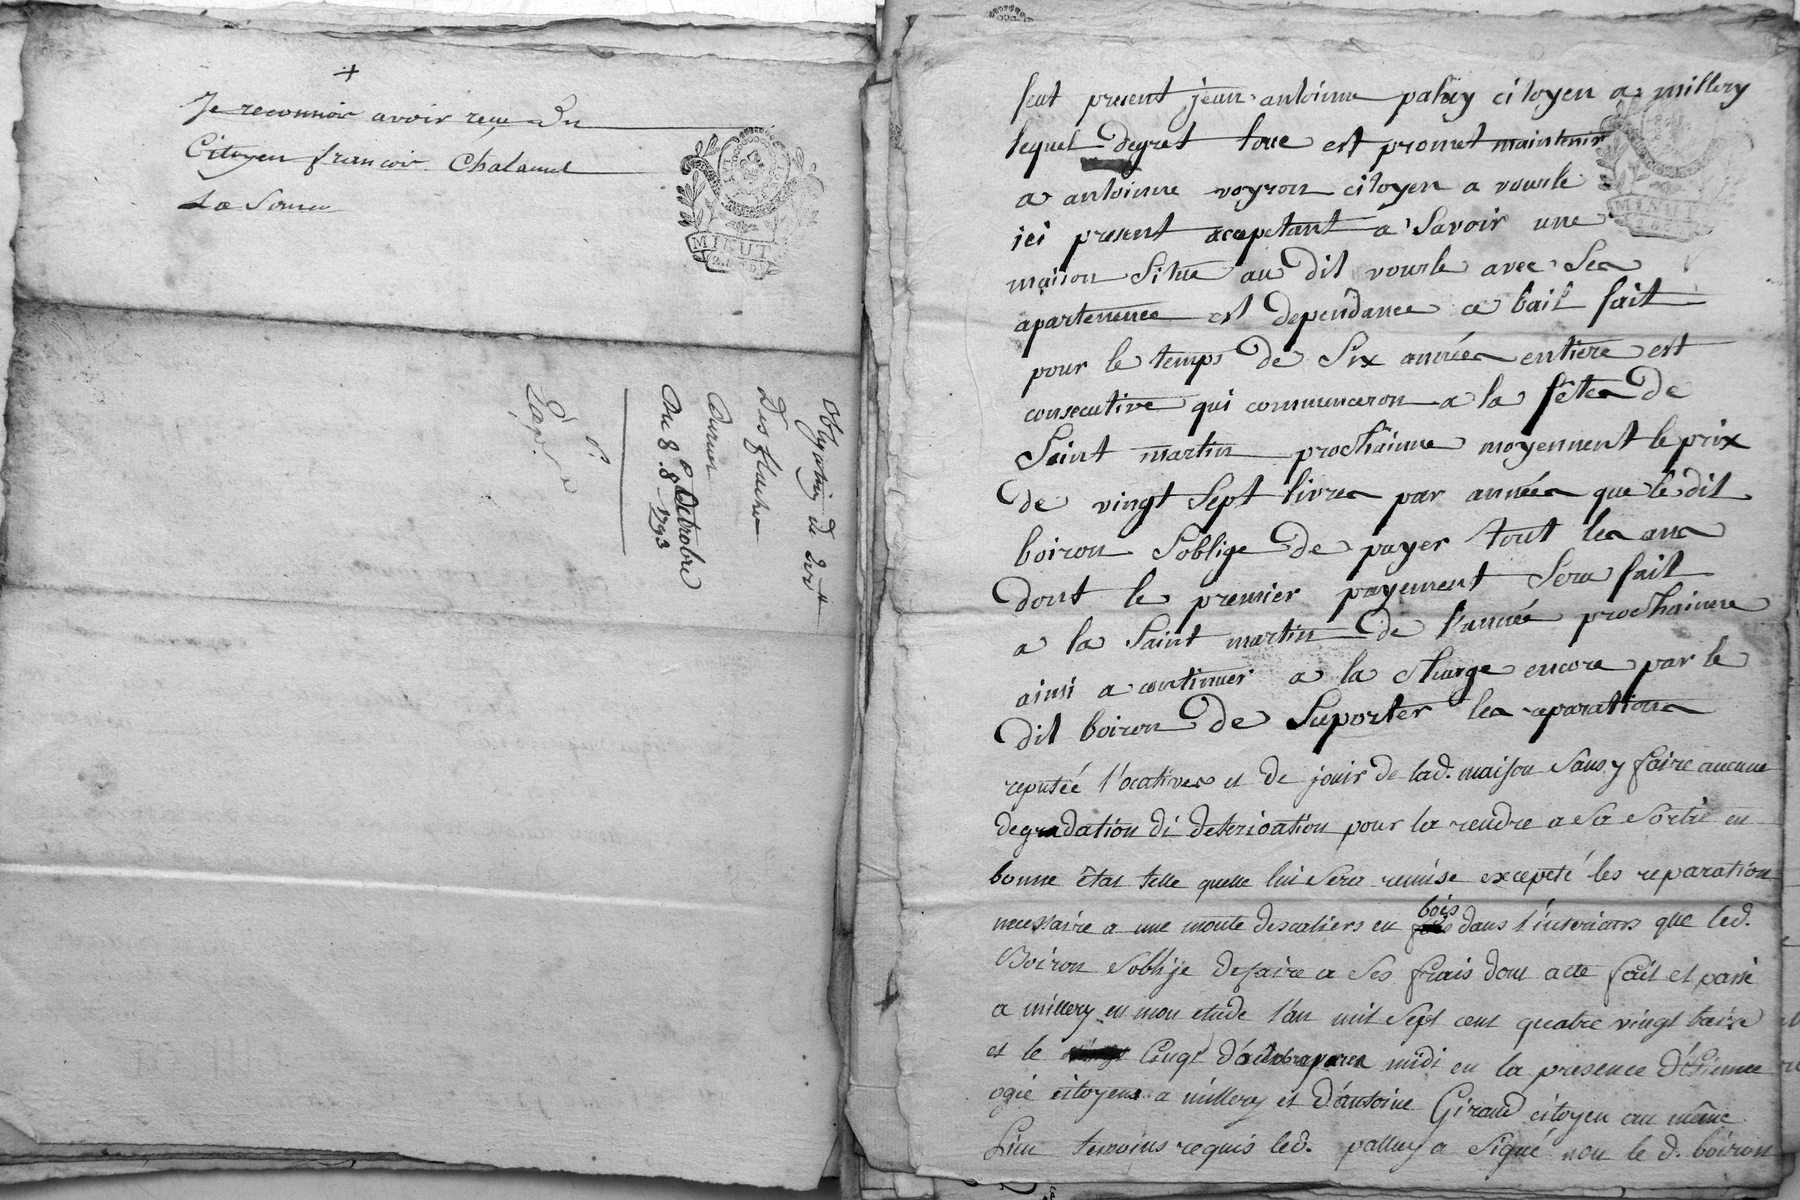 +
Je reconnois avoir reçu du
Citoyen francois Chalamel
La Somme
MINUT
Obligation de
Des flacher
Du 8. 8.bre Octobre
1793
feut present jean antoinne paluy citoyen a millery
lequel degret loue est promet maintenir
a antoinne voyron citoyen a vourle
ici present acceptant a Savoir une
MINUT
maison Situé au dit vourle avec Sea
apartenence est dependance ce bail fait
pour le temps de Six annéea entiere est
consecutive qui commenceron a la fêtea de
Saint martin prochainne moyennent le prix
de vingt Sept livrea par annéea que le dit
boiron Soblige de payer tout lea ana
dont le premier payement Sera fait
a la Saint martin de l'année prochainne
ainsi a continuer a la charge encore par le
dit boiron de Suporter lea reparationa
reputéé l'ocatives et de jouir de lad. maison Sans y faire aucune
degradation di deterioation pour la rendre a Sa Sortie en
bonne êtat telle quelle lui Sera remise excepeté les reparation
necessaire a une monte descaliers en bois dans l'interieurs que led.
Boiron Soblije defaire a Ses frais dont acte fait et passé
a millery en mon etude l'an mil Sept cent quatre vingt treize
et le Cinqt d'octobre apres midi en la presence d'Etienne
ogié citoyens a millery et d'antoine Giraud citoyen au même
Lieu temoins requis led. palluy a Signé non le d. boiron